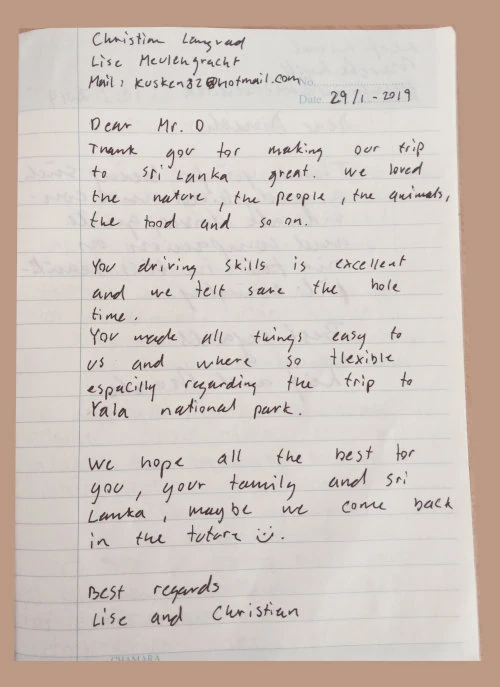 Christian Langvad
Lise Meulengracht
Mail: kusken82@hotmail.com
No.
Date 29/1-2019
Dear Mr. D
Thank you for making our trip
to Sri Lanka great. We loved
the nature, the people, the animals,
the food and so on.
You driving skills is excellent
and we felt save the hole
time.
You made all things easy to
us and where so flexible
espacilly regarding the trip to
Yala national park.
We hope all the best for
you, your family and Sri
Lanka, maybe we come back
in the future
Best regards
Lise and Christian